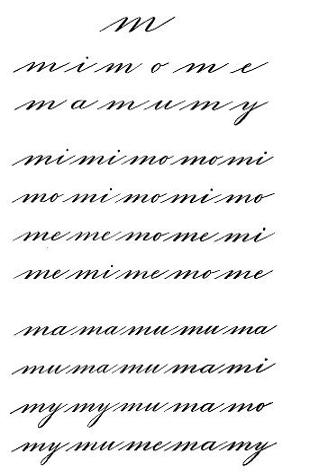 m
m i m o m e
m a m u m y
mi mi mo mo mi
mo mi mo mi mo
me me mo me mi
me mi me mo me
ma ma mu mu ma
mu ma mu ma mi
my my mu ma mo
my mu me ma my